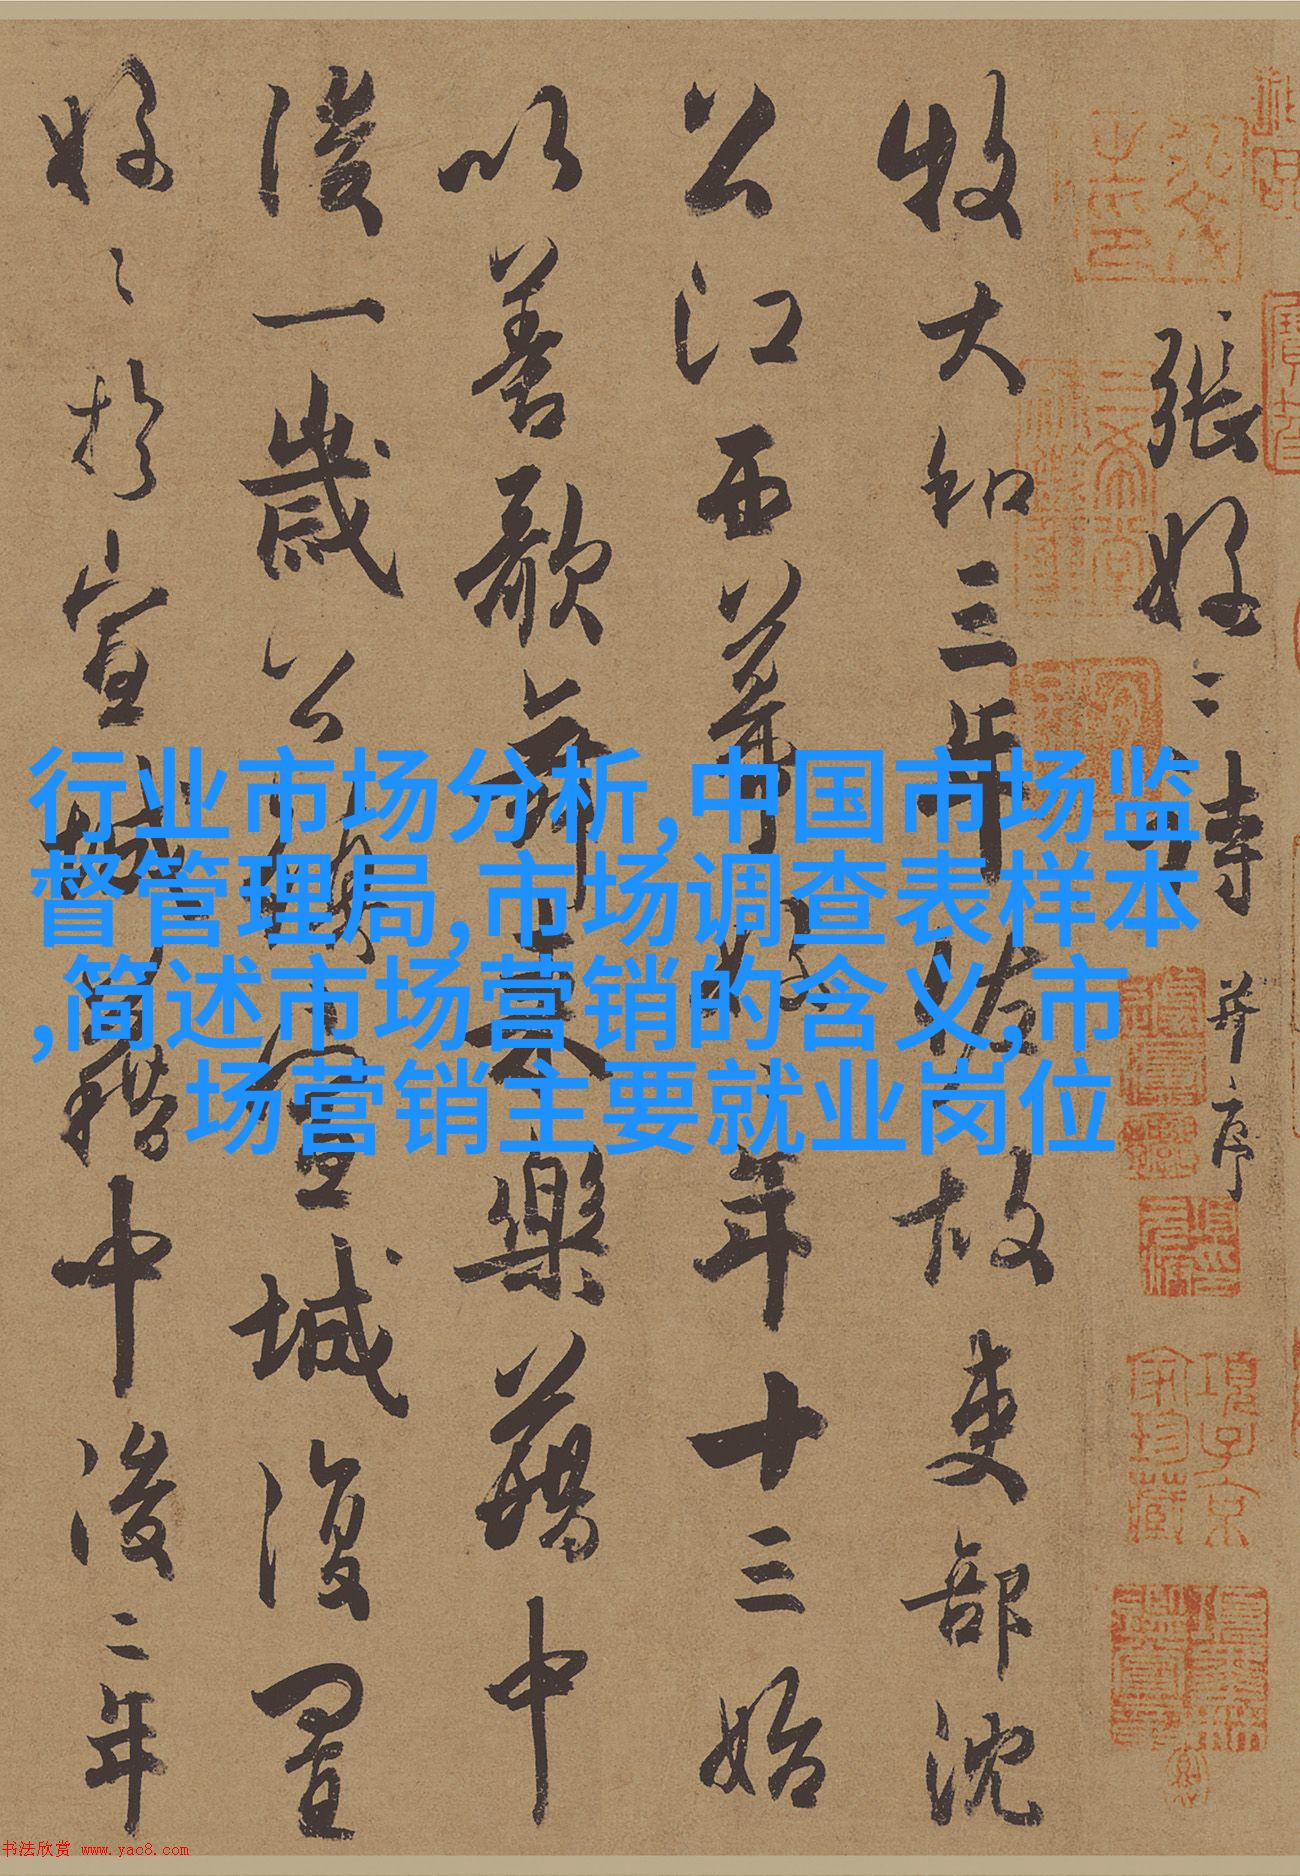 張好〻詩 并序
牧大和三年佐故吏部沈
公江西幕好〻年十三始
以善歌舞來樂籍中
後一歲公鎮宣城復置
好〻於宣城籍中後二年
行业市场分析,中国市场监
督管理局,市场调查表样本
,简述市场营销的含义,市
场营销主要就业岗位
項子京
家珍藏
书法欣赏 www.yac8.com